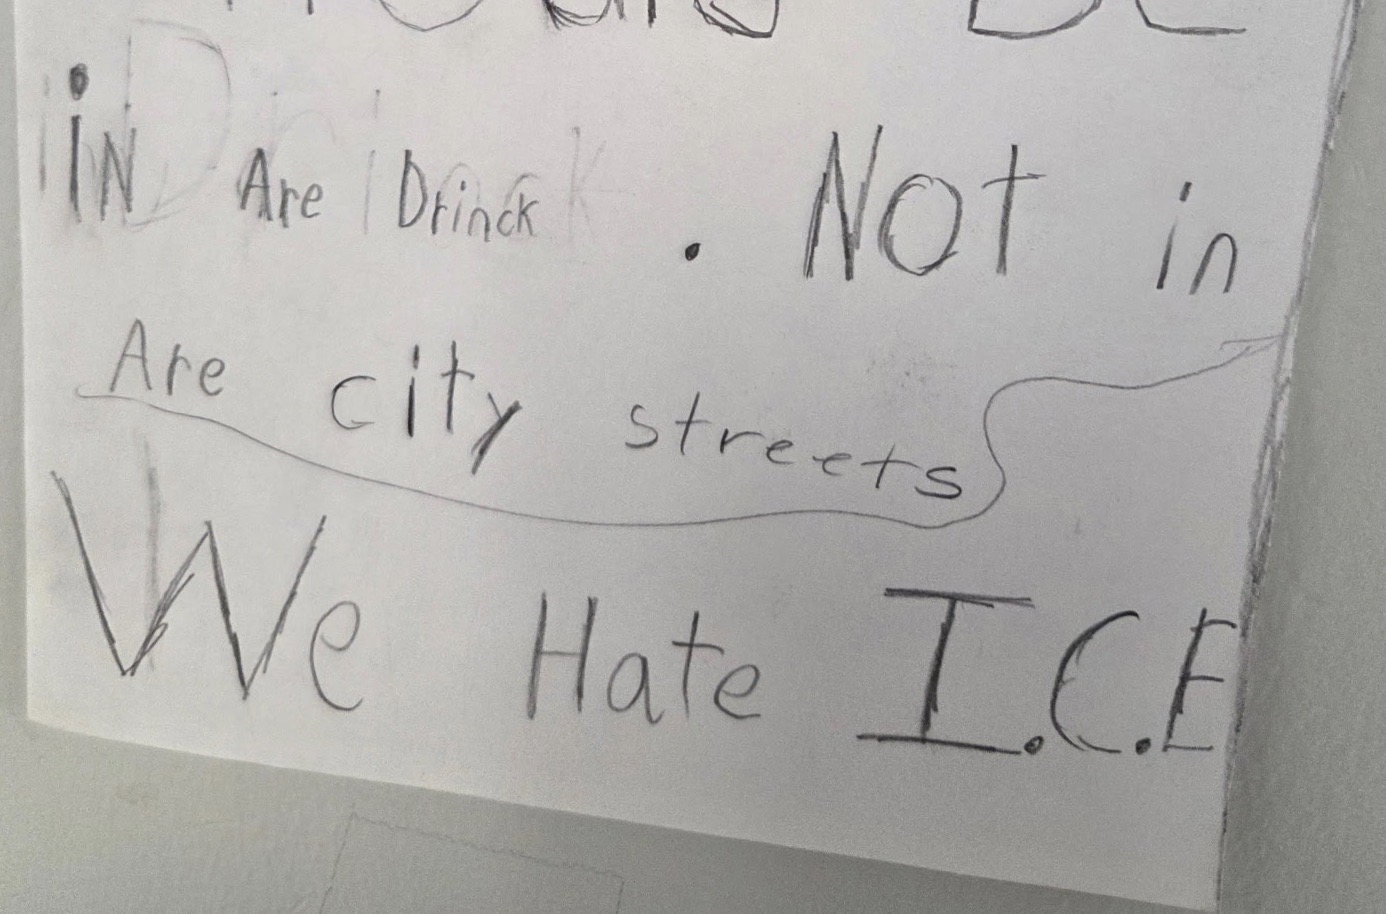 iN Are Drinck . Not in
Are city streets
We Hate I.C.E